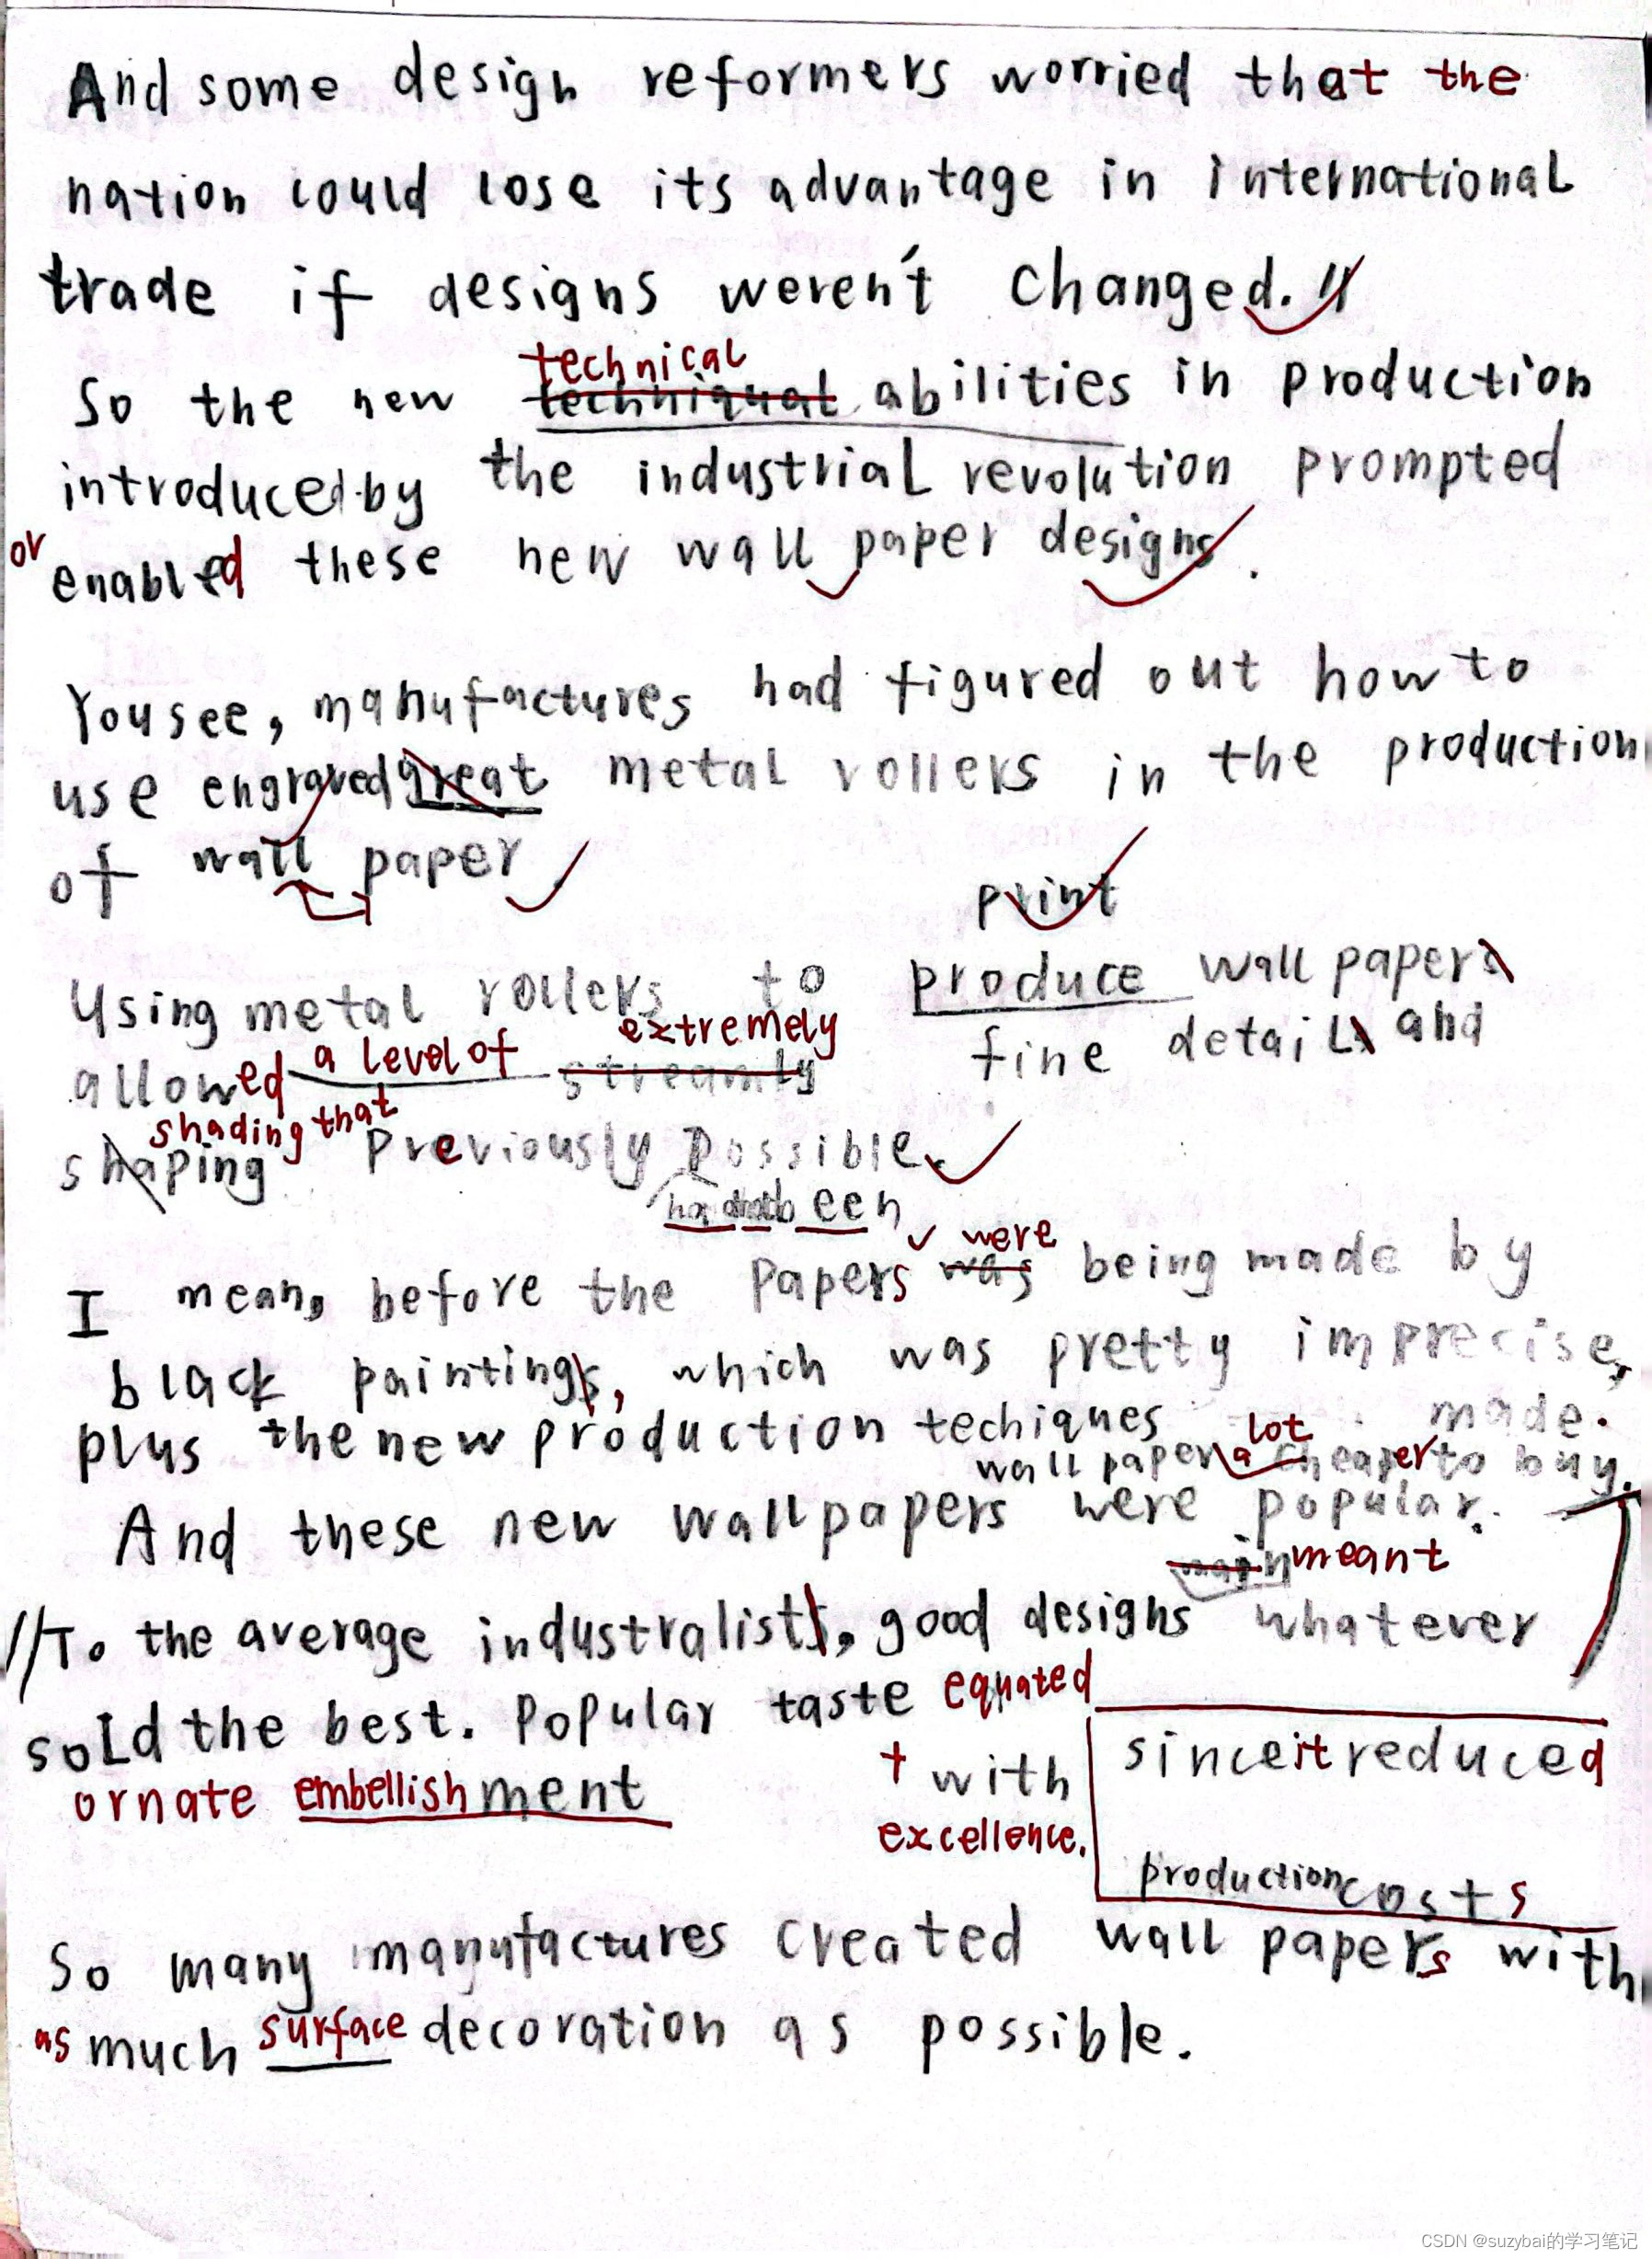 And some design reformers worried that the
nation could lose its advantage in international
trade if designs weren't changed. //
technical
So the new techniqual abilities in production
introduced by the industrial revolution prompted
or enabled these new wall paper designs.
You see, manufactures had figured out how to
use engraved great metal rollers in the production
of wall paper.
print
Using metal rollers to produce wall papers
extremely
allowed a level of streamly fine details and
shading that
shaping previously possible.
been
were
I mean, before the papers was being made by
black paintings, which was pretty imprecise,
plus the new production techiques made.
wall paper a lot cheaper to buy.
And these new wallpapers were popular.
main meant
// To the average industralists, good designs whatever
sold the best. Popular taste equated
ornate embellishment + with
excellence.
since it reduced
production costs
So many manufactures created wall papers with
as much surface decoration as possible.
CSDN @suzybai的学习笔记